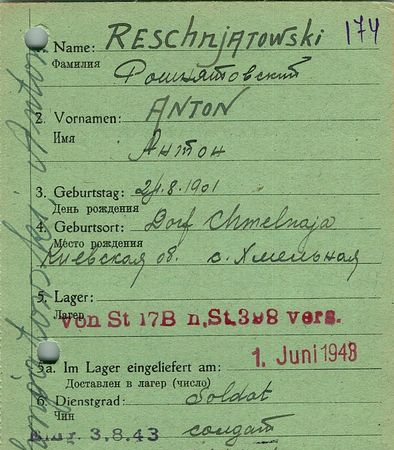 1. Name: RESCHNJATOWSKI 174
Фамилия Рошнятовский
2. Vornamen: ANTON
Имя Антон
3. Geburtstag: 24.8.1901
День рождения
4. Geburtsort: Dorf Chmelnaja
Место рождения
Киевская об. с. Хмельная
5. Lager:
Лагер
von St 17B n. St. 398 vers.
1. Juni 1943
5a. Im Lager eingeliefert am:
Доставлен в лагер (число)
6. Dienstgrad: Soldat
Чин солдат
3.8.43
Anton